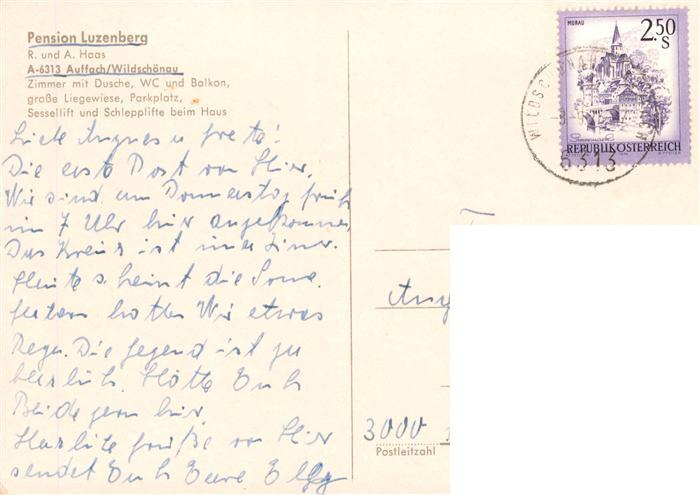 Pension Luzenberg
R. und A. Haas
A-6313 Auffach/Wildschönau
Zimmer mit Dusche, WC und Balkon,
große Liegewiese, Parkplatz,
Sessellift und Schlepplifte beim Haus
MURAU
2.50
S
REPUBLIK ÖSTERREICH
WILDSCHÖNAU
6313
Liebe u Grete!
Die erste Post von Hier,
Wir sind am Donnerstag früh
um 7 Uhr hier angekommen,
Das ist Zimr.
Heute scheint die Sonne.
Gestern hatten Wir etwas
Regen. Die Gegend ist zu
herlich. Hätte Euch
Beide gern hir.
Herliche Grüße von Hier
sendet Euch Eure
Ang
3000
Postleitzahl